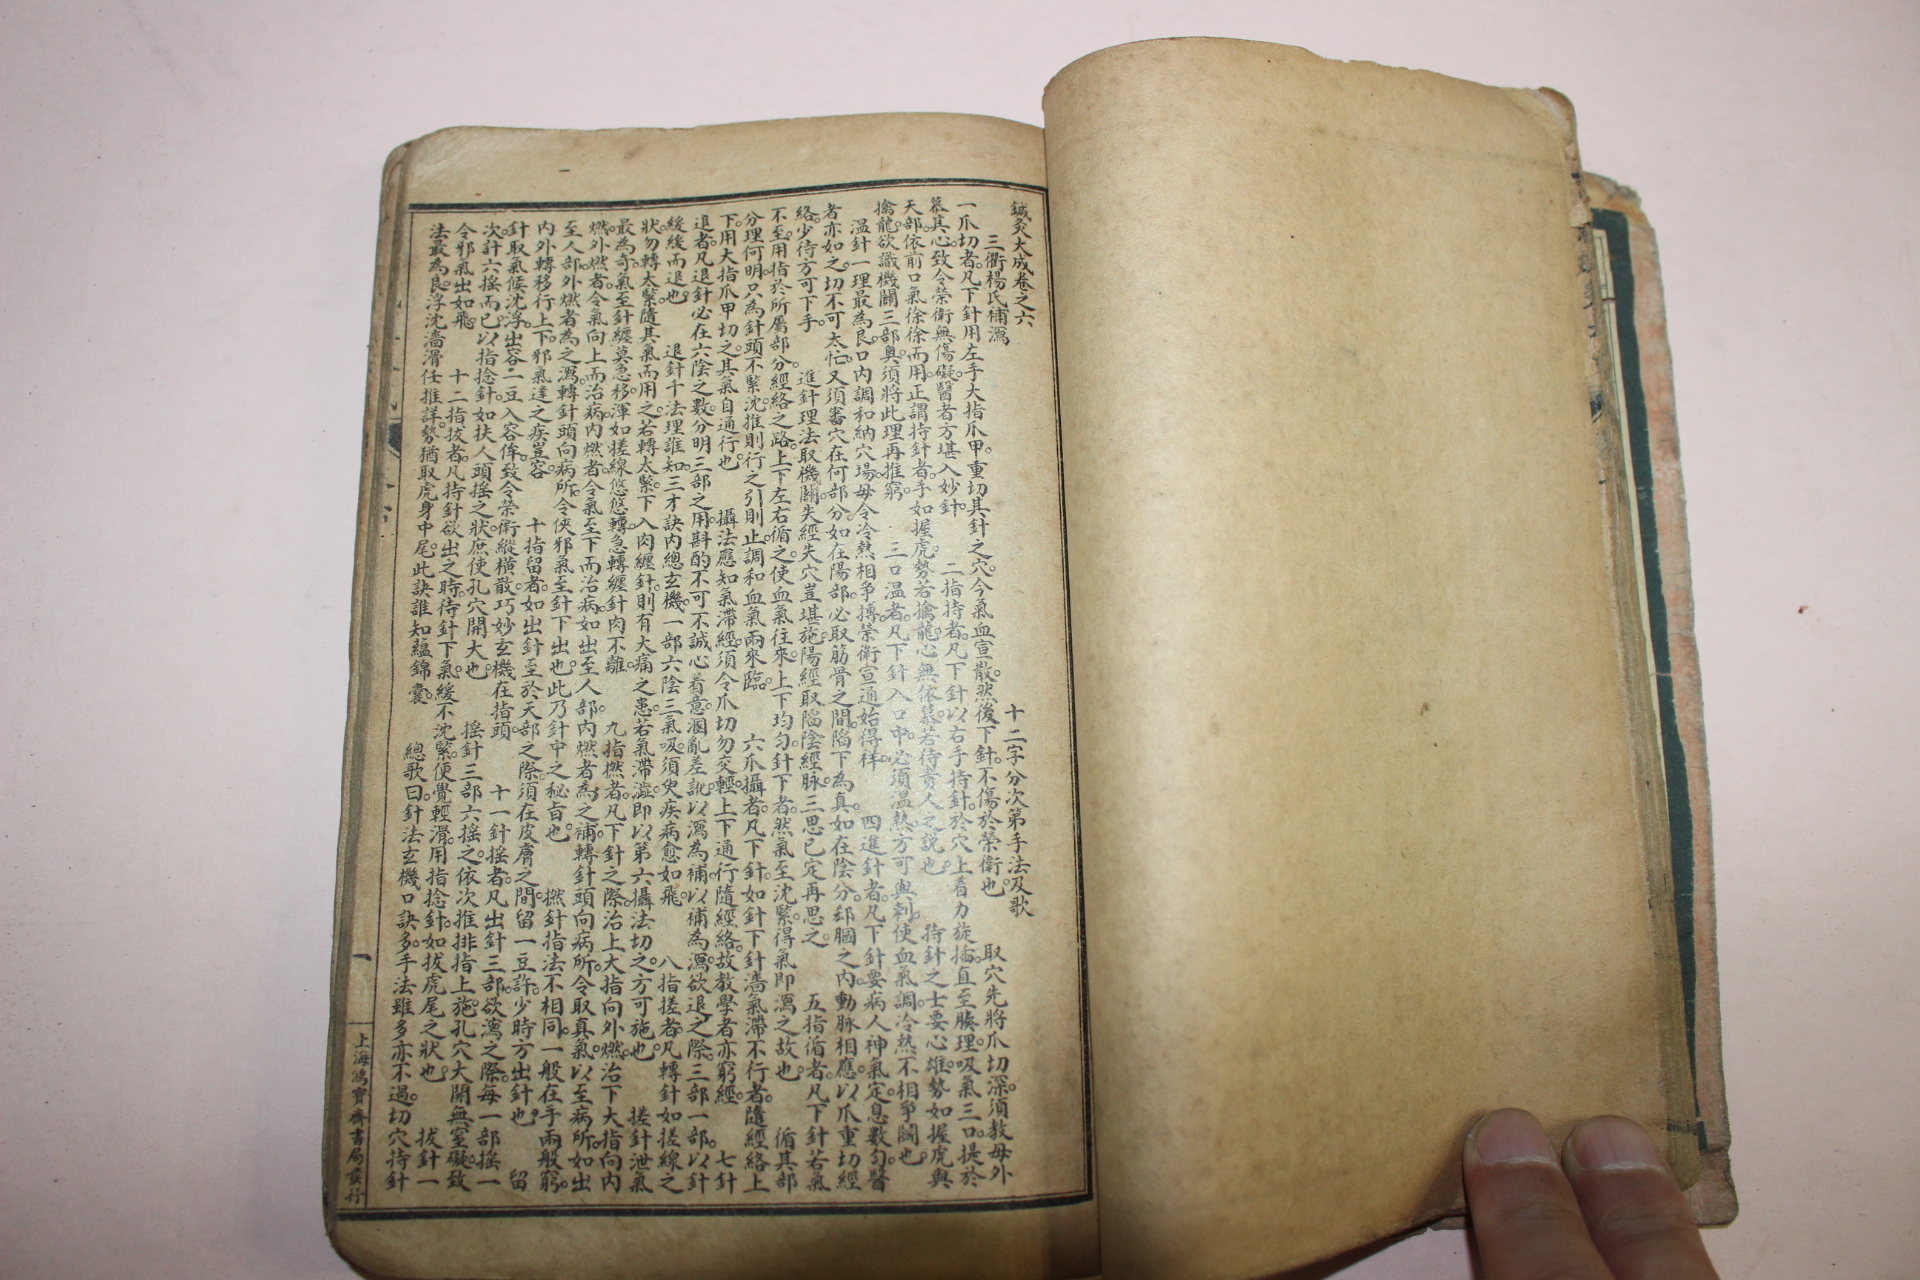 鍼灸大成卷之六
三衢楊氏補瀉　十二字分次第手法及歌
一爪切者。凡下針用左手大指爪甲。重切其針之穴。令氣血宣散。然後下針。不傷於榮衛也。　取穴先將爪切深。須教毋外
慕其心。致令榮衛無傷礙。醫者方堪入妙針。　二指持者。凡下針以右手持針。於穴上着力旋插。直至腠理。吸氣三口。提於
天部。依前口氣徐徐而用。正謂持針者。手如握虎。勢若擒龍。心無依慕。若待貴人之說也。　持針之士要心雄。勢如握虎與
擒龍。欲識機關三部奧。須將此理再推窮。　三口溫者。凡下針入口中。必須溫熱方可與刺。使血氣調。冷熱不相爭鬭也。
溫針一理最為良。口內調和納穴場。毋令冷熱相爭搏。榮衛宣通始得祥　四進針者。凡下針要病人神氣定。息數勻。醫
者亦如之。切不可太忙。又須審穴在何部分。如在陽部。必取筋骨之間。陷下為真。如在陰分。郄膕之內。動脉相應。以爪重切經
絡。少待方可下手。　進針理法取機關。失經失穴豈堪施。陽經取陷陰經脉。三思已定再思之。　五指循者。凡下針若氣
不至。用指於所屬部分經絡之路。上下左右循之。使血氣往來。上下均勻。針下者。然氣至沈緊。得氣即瀉之故也。　循其部
分理何明。只為針頭不緊沈。推則行之引則止。調和血氣兩來臨。　六爪攝者。凡下針如針下針濇氣滯不行者。隨經絡上
下。用大指爪甲切之。其氣自通行也　攝法應知氣滯經。須令爪切勿交輕。上下通行隨經絡。故教學者亦窮經。　七針
退者。凡退針必在六陰之數。分明三部之用。斟酌不可不誠心着意。溷亂差訛。以瀉為補。以補為瀉。欲退之際。三部一部。以針
緩緩而退也。　退針十法理誰知。三才訣內總玄機。一部六陰三氣吸。須臾疾病愈如飛。　八指搓者。凡轉針如搓線之
狀。勿轉太緊。隨其氣而用之。若轉太緊。下入肉纏針。則有大痛之患。若氣滯濇。即以第六攝法切之。方可施也。　搓針泄氣
最為奇。氣至針纏莫急移。渾如搓線悠悠轉。急轉纏針肉不離　九指撚者。凡下針之際。治上大指向外燃。治下大指向內
燃。外燃者。令氣向上而治病。內燃者。令氣至下而治病。如出至人部。內燃者為之補。轉針頭向病所。令取真氣以至病所。如出
至人部。外燃者為之瀉。轉針頭向病所。令俠邪氣至針下出也。此乃針中之秘旨也。　撚針指法不相同。一般在手兩般窮。
內外轉移行上下。邪氣逢之疾豈容。　十指留者。如出針至於天部之際。須在皮膚之間。留一豆許。少時方出針也。　留
針取氣候沈浮。出容一豆入容侔。致令榮衛縱橫散。巧妙玄機在指頭　十一針搖者。凡出針三部。欲瀉之際。每一部搖一
次。計六搖而已。以指捻針。如扶人頭搖之狀。庶使孔穴開大也。　搖針三部六搖之。依次推排指上施。孔穴大開無窒礙。致
令邪氣出如飛　十二指拔者。凡持針欲出之時。待針下氣緩不沈緊。便覺輕滑。用指捻針。如拔虎尾之狀也。　拔針一
法最為良。浮沈濇滑任推詳。勢猶取虎身中尾。此訣誰知蘊錦囊。　總歌曰。針法玄機口訣多。手法雖多亦不過。切穴持針
一
上海鴻寶齋書局發行